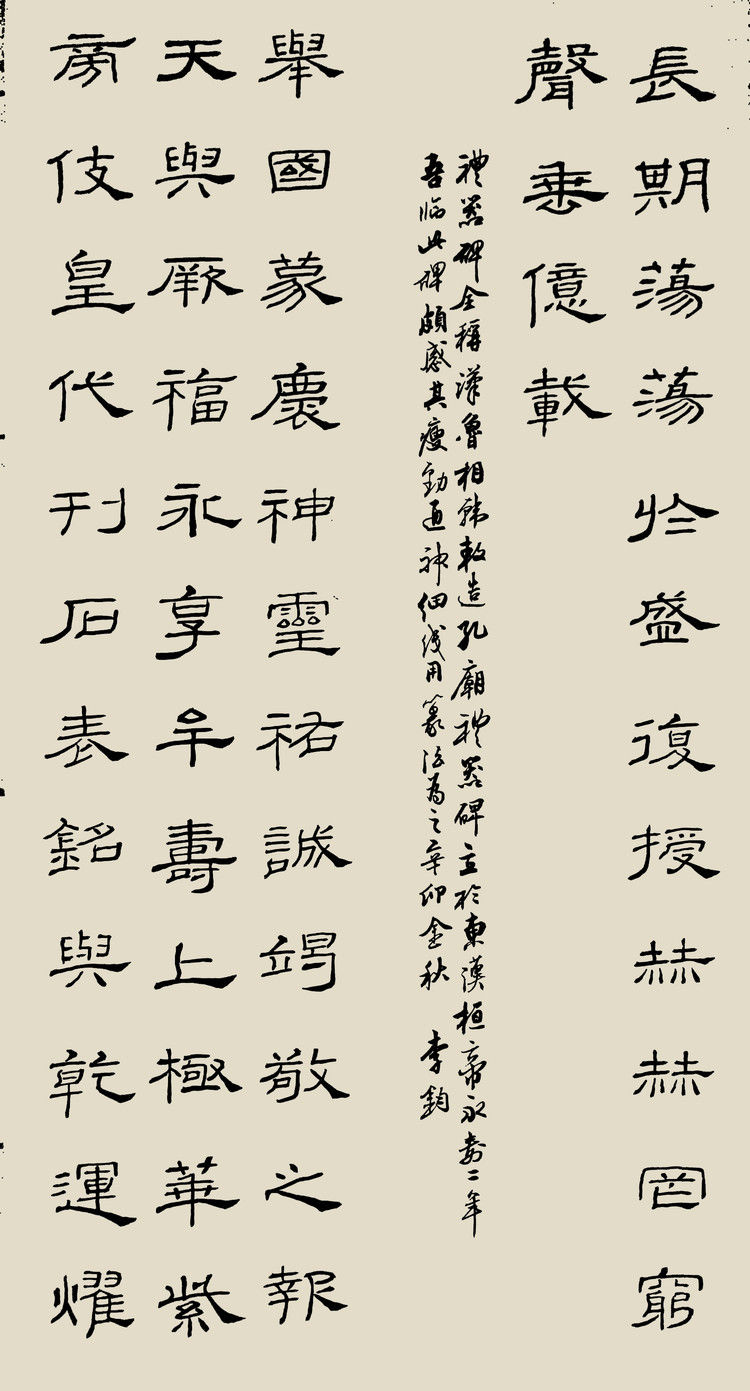 長期蕩蕩於盛復授赫赫罔窮
聲垂億載
禮器碑全稱漢魯相韓敕造孔廟禮器碑立於東漢桓帝永壽二年
吾臨此碑頗感其瘦勁通神細線用篆法為之辛卯金秋 李鈞
舉國蒙慶神靈祐誠竭敬之報
天與厥福永享牟壽上極華紫
旁伎皇代刊石表銘與乾運燿